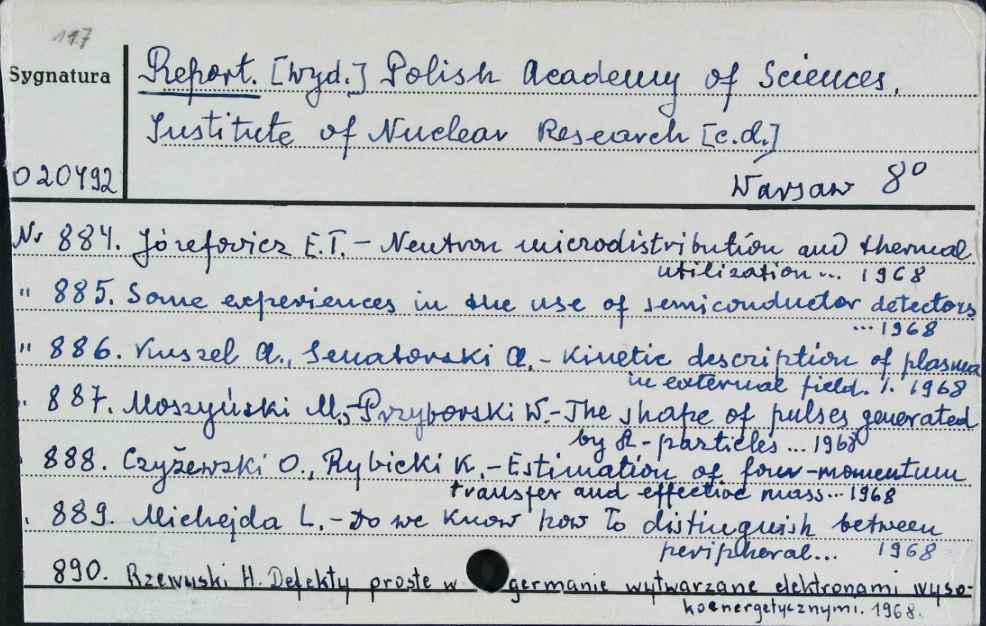 117
Sygnatura
Report. [wyd.] Polish Academy of Sciences.
Institute of Nuclear Research [c.d.]
020492 Warsaw 8°
Nr 884. Józefowicz E.T. - Neutron microdistribution and thermal
utilization... 1968
" 885. Some experiences in the use of semiconductor detectors
...1968
" 886. Kuszel A., Senatorski A. - Kinetic description of plasma
in external field. 1. 1968
" 887. Moszyński M., Przyborski W. - The shape of pulses generated
by α-particles... 1968
888. Czyżewski O., Rybicki K. - Estimation of four-momentum
transfer and effective mass... 1968
889. Michejda L. - Do we know how to distinguish between
peripheral... 1968
890. Rzewuski H. Defekty proste w germanie wytwarzane elektronami wyso-
koenergetycznymi. 1968.